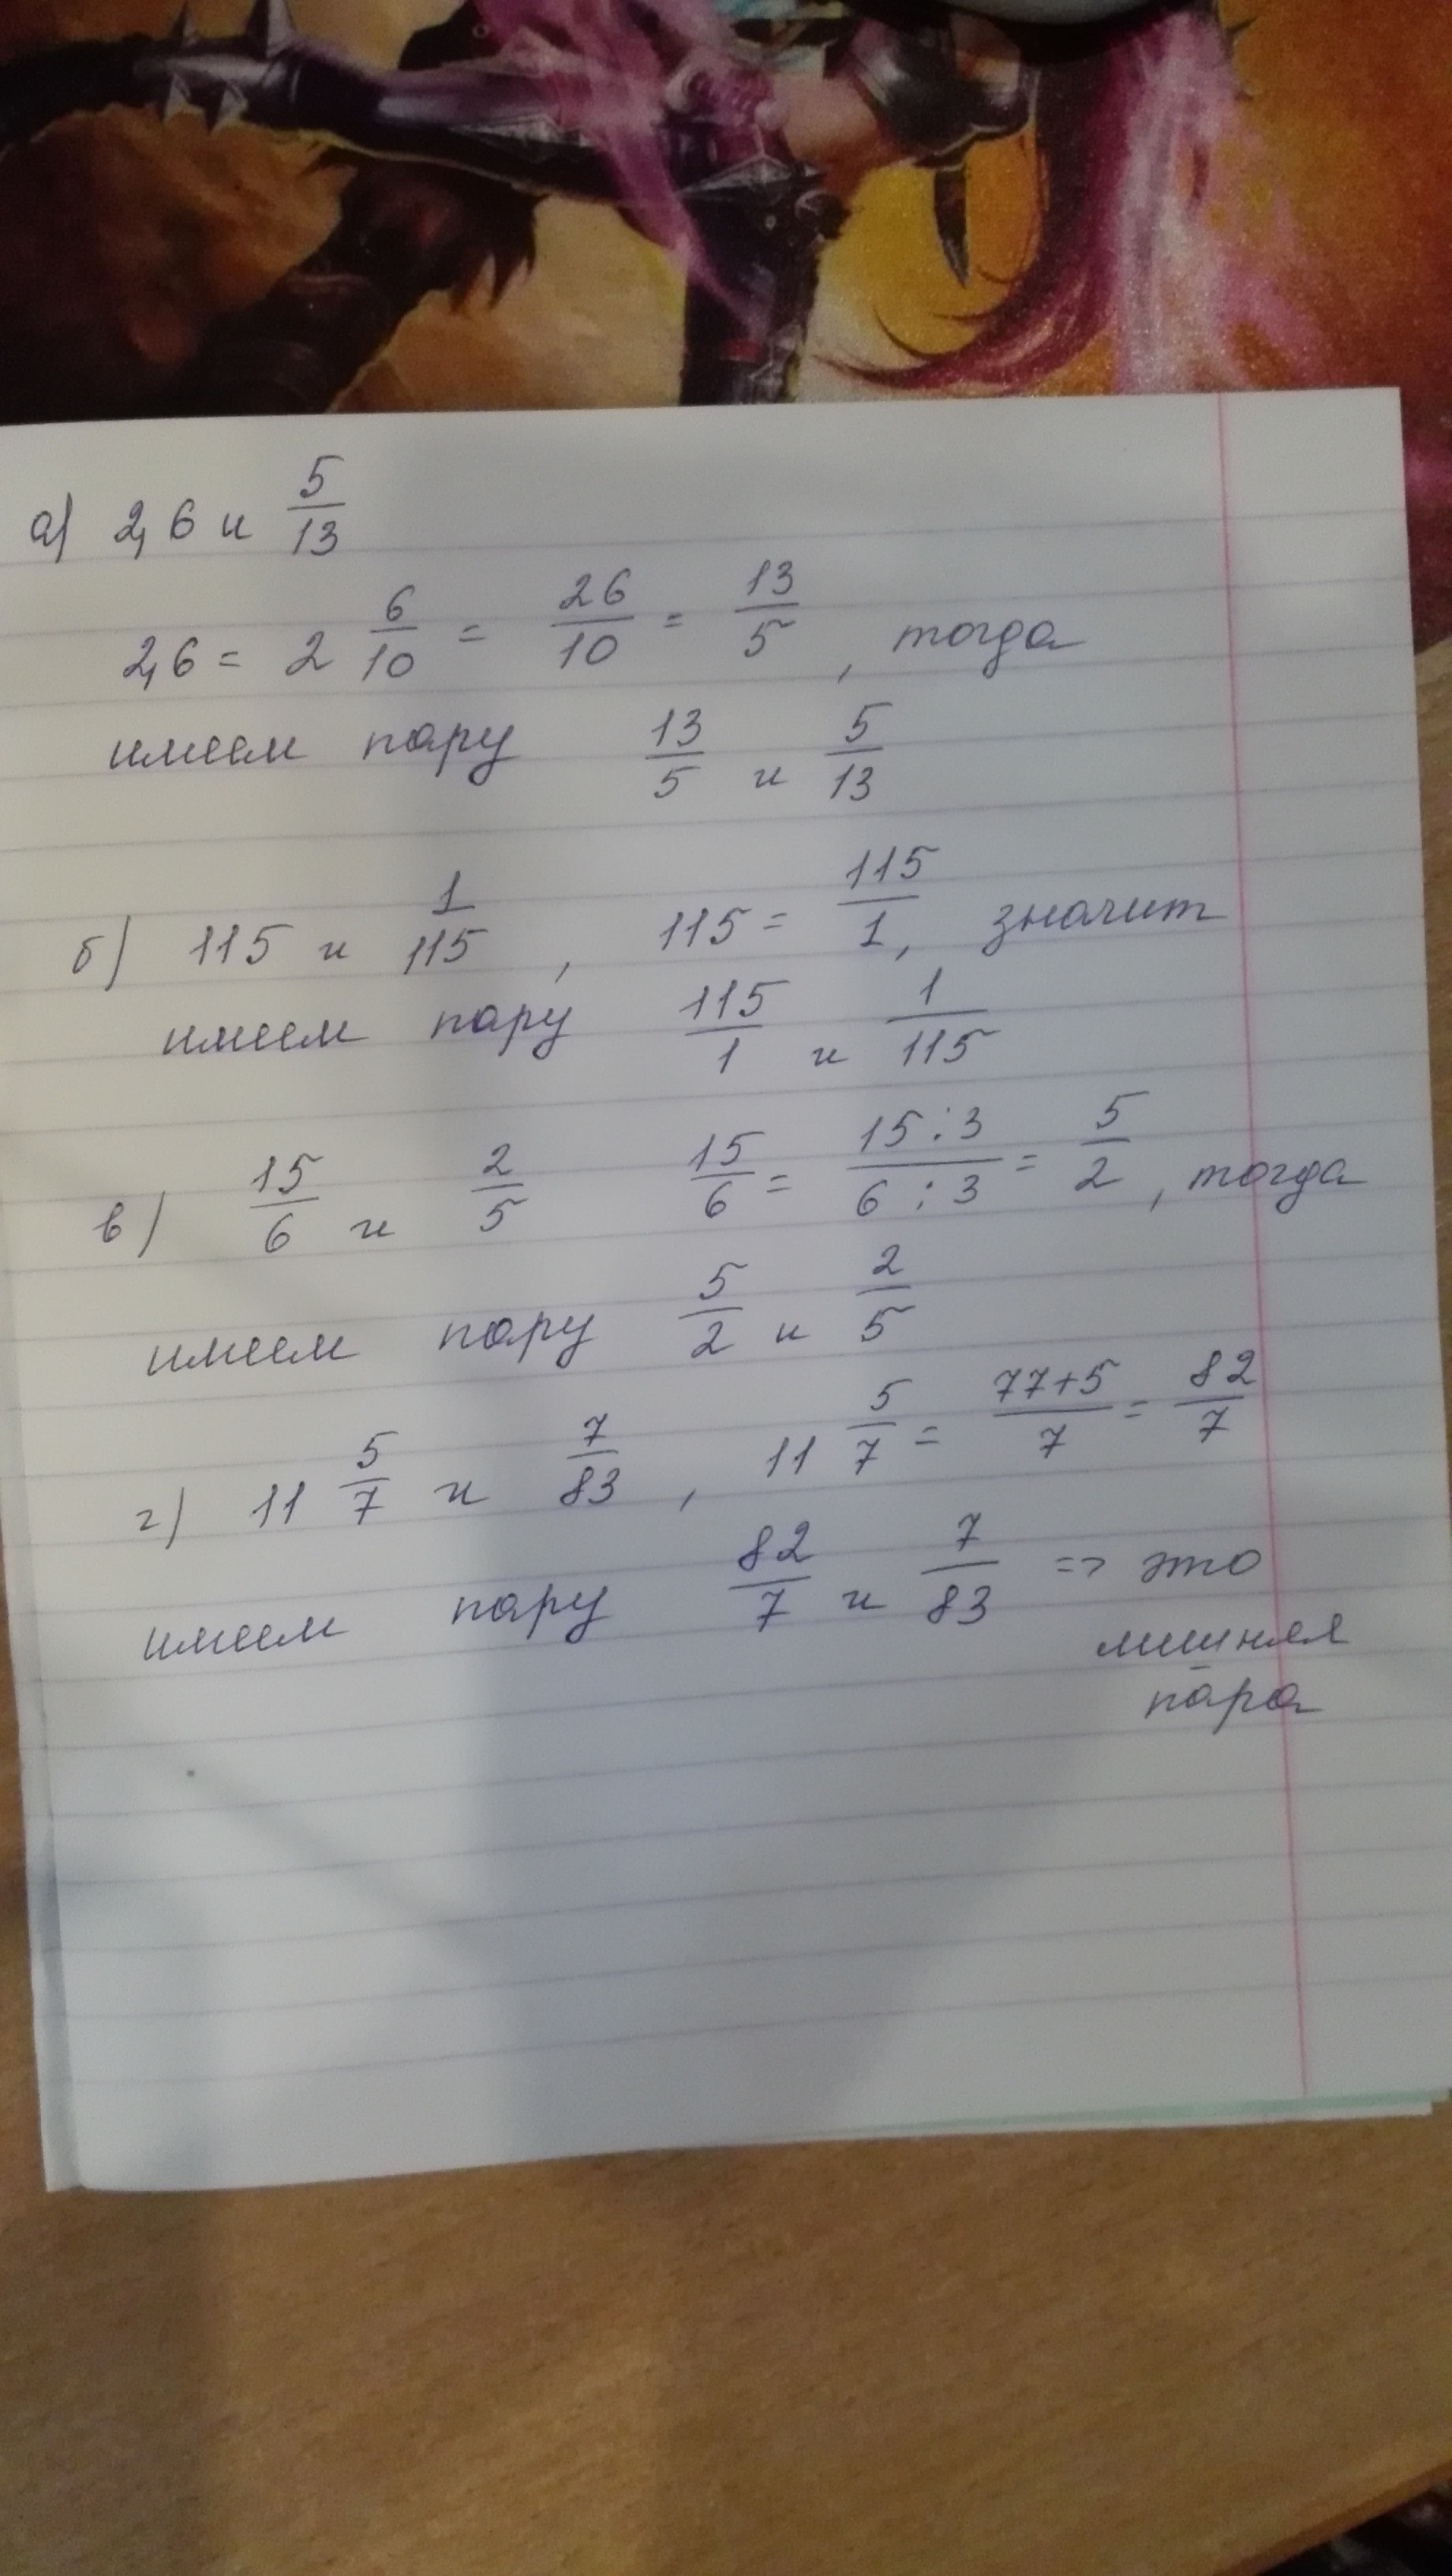 а) 2,6 и 5/13
2,6 = 2 6/10 = 26/10 = 13/5, тогда
имеем пару 13/5 и 5/13
б) 115 и 1/115, 115 = 115/1, значит
имеем пару 115/1 и 1/115
в) 15/6 и 2/5 15/6 = 15:3/6:3 = 5/2, тогда
имеем пару 5/2 и 2/5
г) 11 5/7 и 7/83, 11 5/7 = 77+5/7 = 82/7
имеем пару 82/7 и 7/83 => это
лишняя
пара